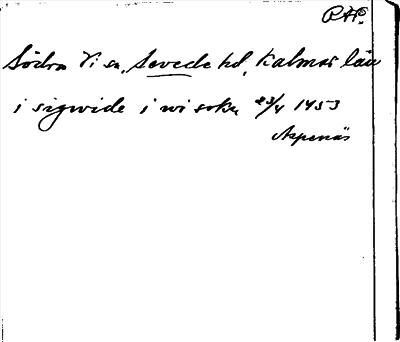 RAP.
Södra Vi sn, Sevede hd, Kalmar län
i sigwide i wi sokn 23/4 1453
Aspenäs